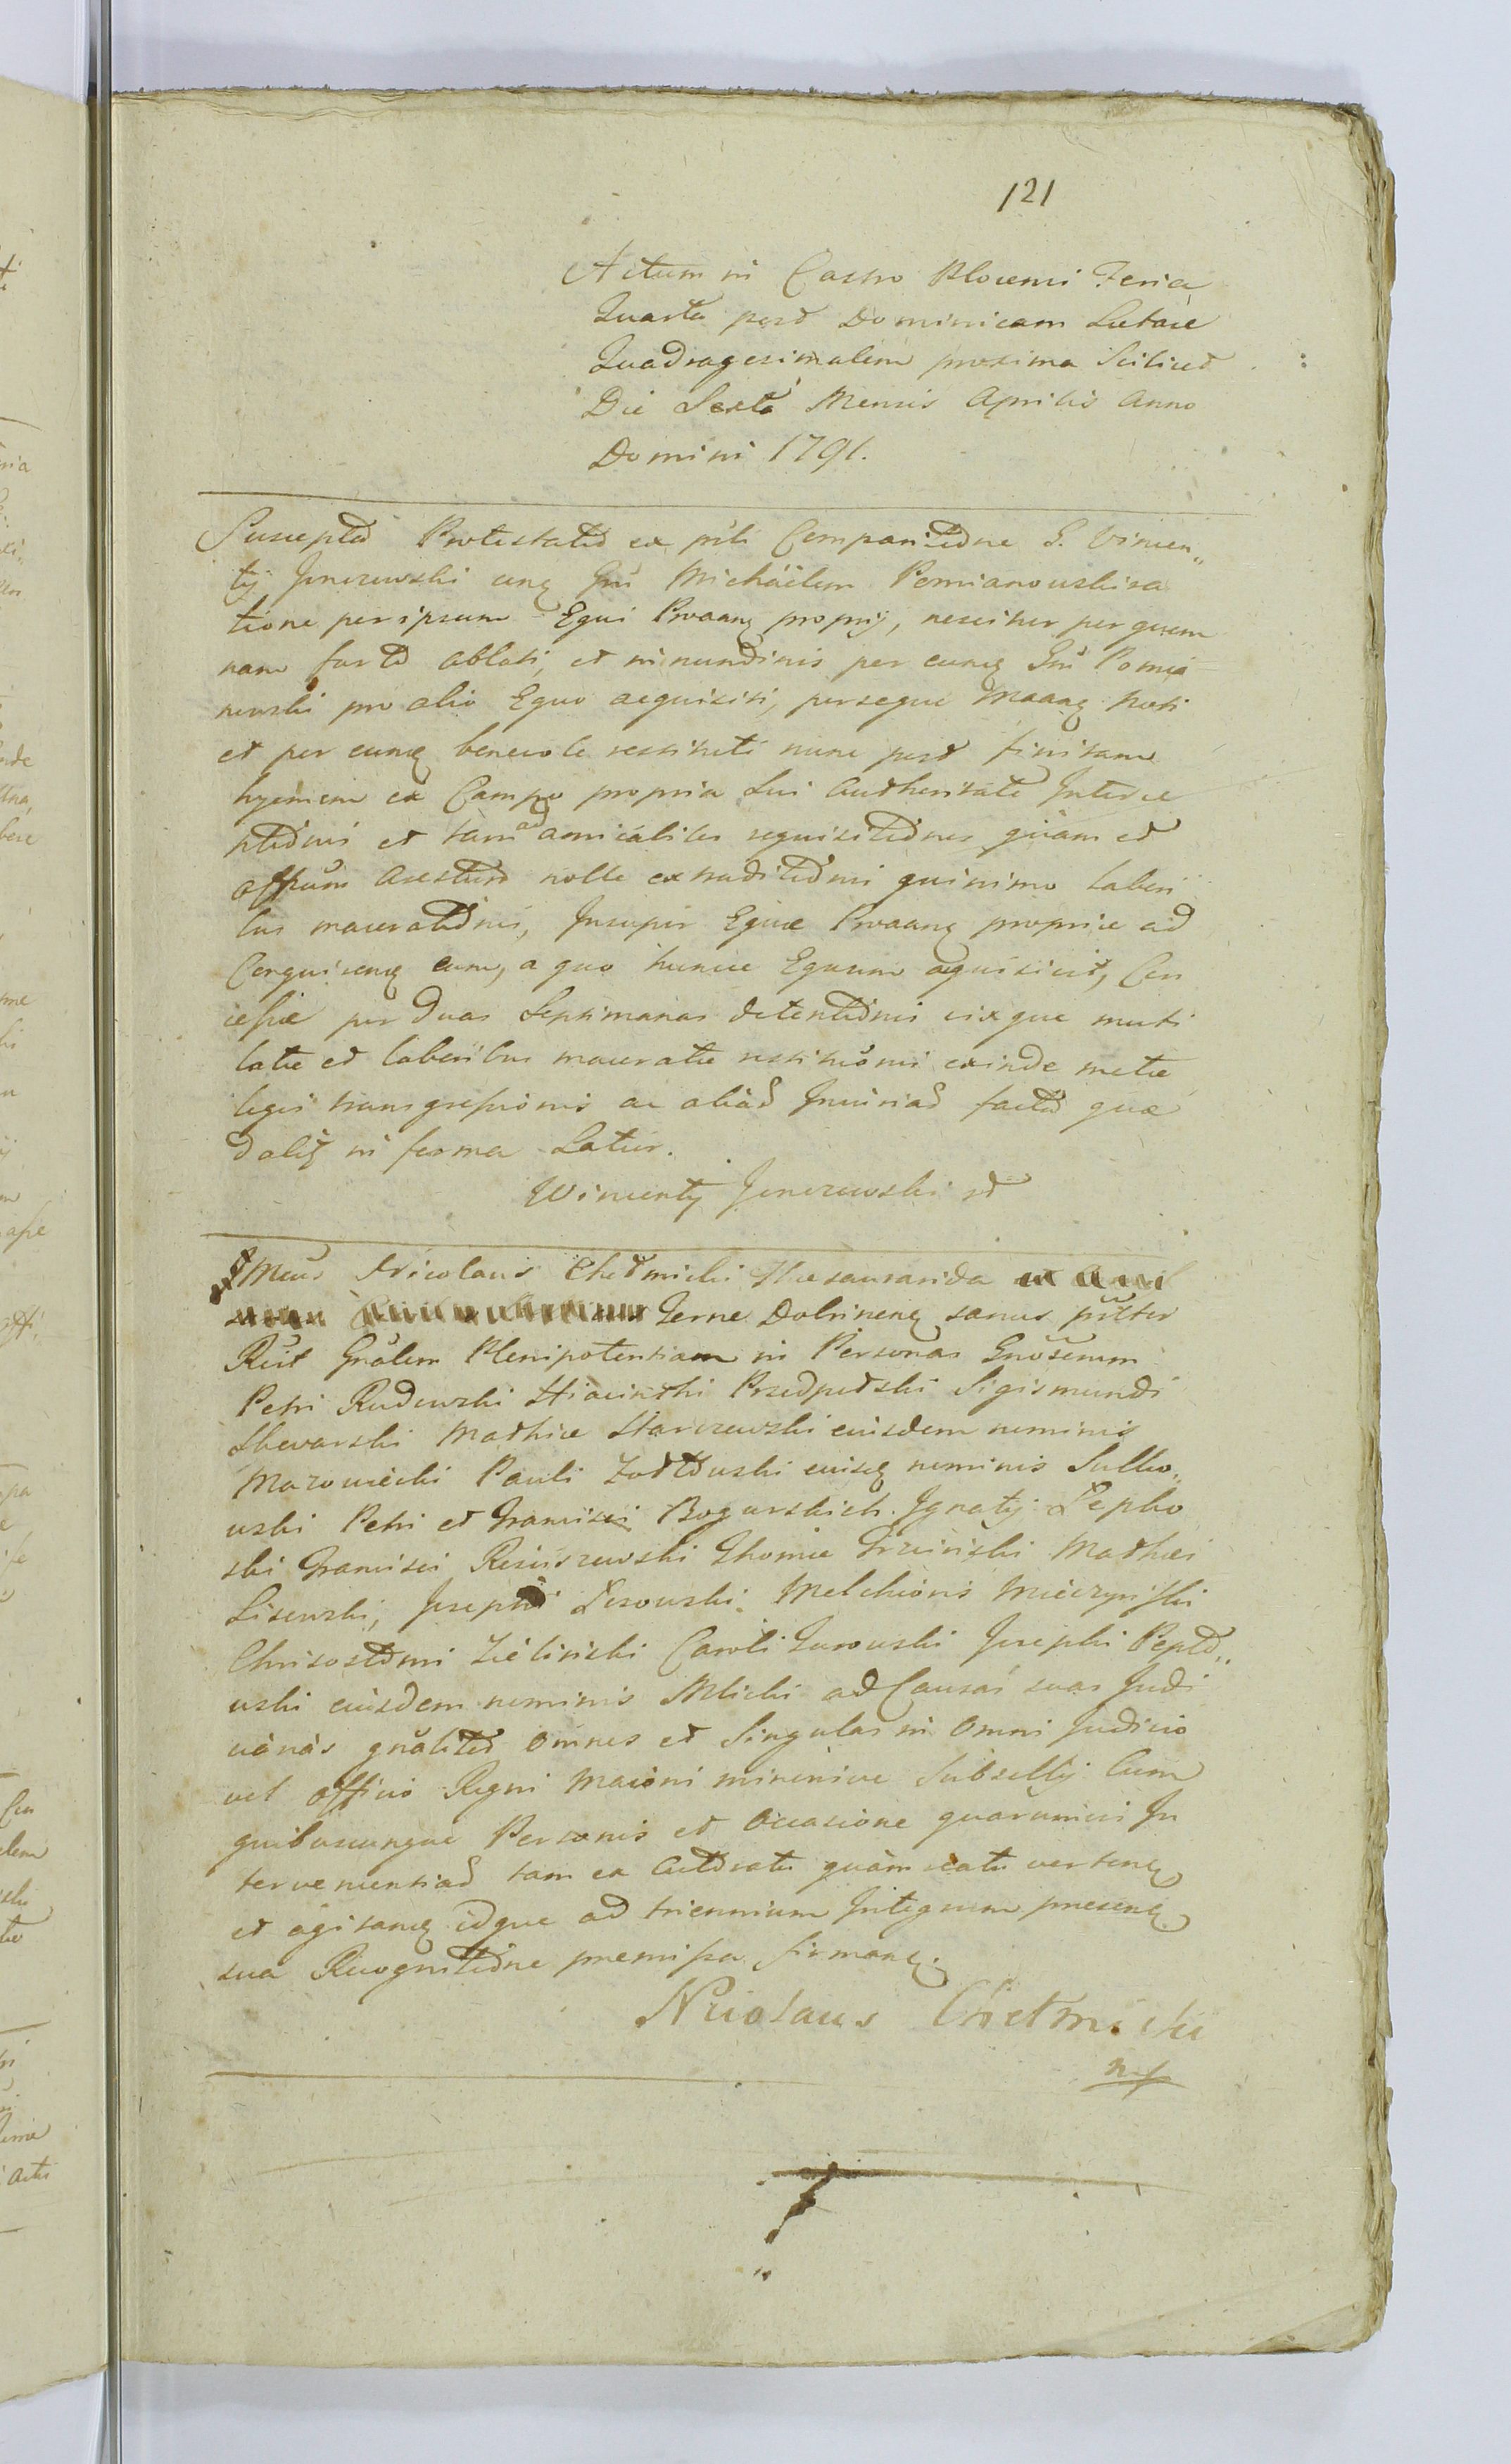 121
Actum in Castro Plocensi Feria
Quarta post Dominicam Laetare
Quadragesimalem proxima Scilicet
Die Sexta Mensis Aprilis Anno
Domini 1791.
Suscepta Protestatio ex prti Comparitione G. Vincen„
tij Jenczewski cunq Gn Michaelem Pomianowski ra
tione per ipsum Equi Proanq proprij, nescitur per quem
nam furto ablati, et in nundinis per eunq Gn Pomia
nowski pro alio Equo acquisiti, perseque Maanq
et per eunq benevole restituti nunc post finitam
hyemem ex Campo propria Sui Authoritate Interce
ptionis et tam ad amicabiles requisitiones quam et
offium arestum nolle extraditionis quinimo labori
bus macerationis, Insuper Equae Proanq propriae ad
Conquirenq eum, a quo hunce Equum aquisivit, Con
cessae per duas Septimanas detentionis vixque muti
latae et laboribus maceratae restituonis exinde metae
legis transgressionis ac aliad Iniuriad facta quae
dalig in forma Latur.
Wincenty Jenczewski
Mcus Nicolaus Chełmicki Thesaurarida
Terrae Dobrinenq sanus
Gnalem Plenipotentiam in Personas Gnosorum
Petri Rudowski Hiacinthi Przedpełski Sigismundi
Mathiae Starczewski eiusdem nominis
Mazowiecki Pauli Zołtowski eiusq nominis Sulko„
wski Petri et Francisci Bogurskich Ignatij Lepko
ski Francisci Reściszewski Thomae Mathaei
Lisewski, Josephi Melchioris Mieczynski
Chrisostomi Zielinski Caroli Jurowski Josephi Pepło„
wski eiusdem nominis Milicki ad Causas suas Judi
ciarias gnalited omnes et Singulas in Omni Judicio
vel officio Regni Maiori minorive Subsellij Cum
quibuscunque Personis et Occasione quarumvis In
tervenientiad tam ex Actoratu quam reatu vertenq
et agitanq idque ad triennium Integrum presenq
sua Recognitione premissa firmanq.
Nicolaus Chełmicki